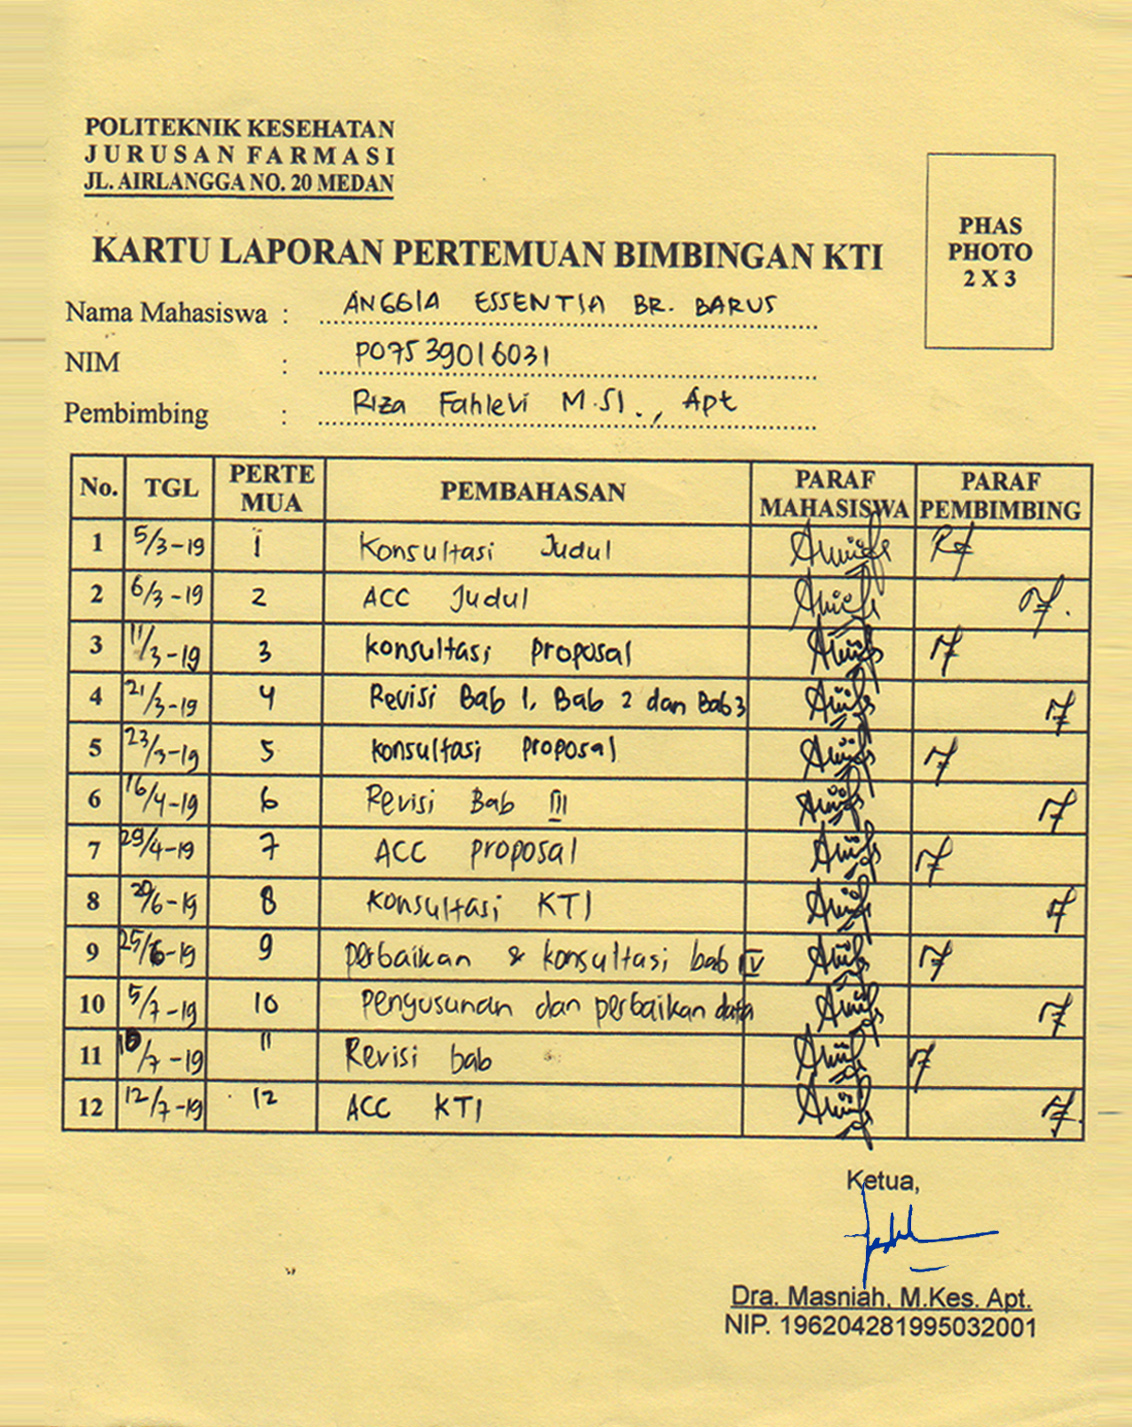 POLITEKNIK KESEHATAN
JURUSAN FARMASI
JL. AIRLANGGA NO. 20 MEDAN
PHAS
PHOTO
2 X 3
KARTU LAPORAN PERTEMUAN BIMBINGAN KTI
Nama Mahasiswa : ANGGIA ESSENTIA BR. BARUS
NIM : P07539016031
Pembimbing : Riza Fahlevi M.Si., Apt
No. TGL PERTE MUA PEMBAHASAN PARAF MAHASISWA PARAF PEMBIMBING
1 5/3-19 1 Konsultasi Judul
2 6/3-19 2 ACC Judul
3 11/3-19 3 konsultasi proposal
4 21/3-19 4 Revisi Bab 1, Bab 2 dan Bab 3
5 23/3-19 5 konsultasi proposal
6 16/4-19 6 Revisi Bab III
7 29/4-19 7 ACC proposal
8 20/6-19 8 konsultasi KTI
9 25/6-19 9 perbaikan & konsultasi bab IV
10 5/7-19 10 penyusunan dan perbaikan data
11 10/7-19 11 Revisi bab
12 12/7-19 12 ACC KTI
Ketua,
Dra. Masniah, M.Kes. Apt.
NIP. 196204281995032001